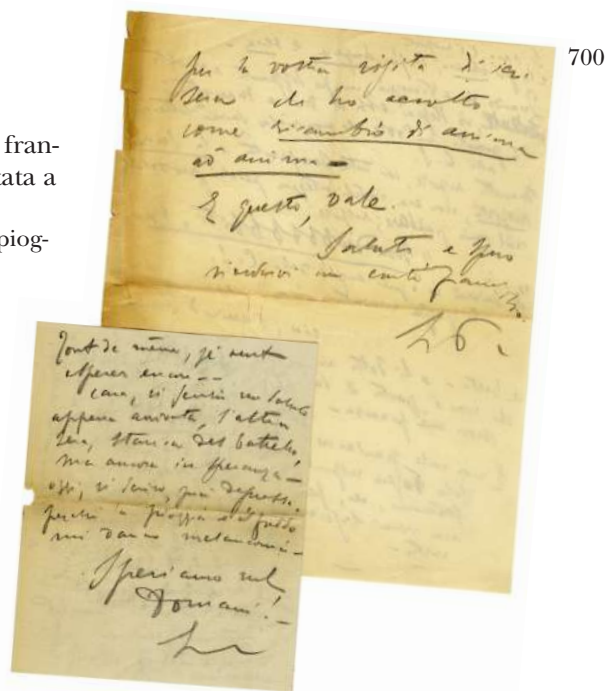 700
fran-
tata a
piog-
per la vostra visita di ieri
sera che ho accolto
come ricambio di anima
ad anima —
E questo, vale.
Saluti e spero
rivedervi
Tout de même, je veux
espérer encore --
cara, vi scrissi un saluto
appena arrivata, l'altra
sera, stanca del battello,
ma ancora in speranza —
oggi, vi scrivo, più depressa.
perché la pioggia e il freddo
mi danno melanconia —
Speriamo nel
Domani! —